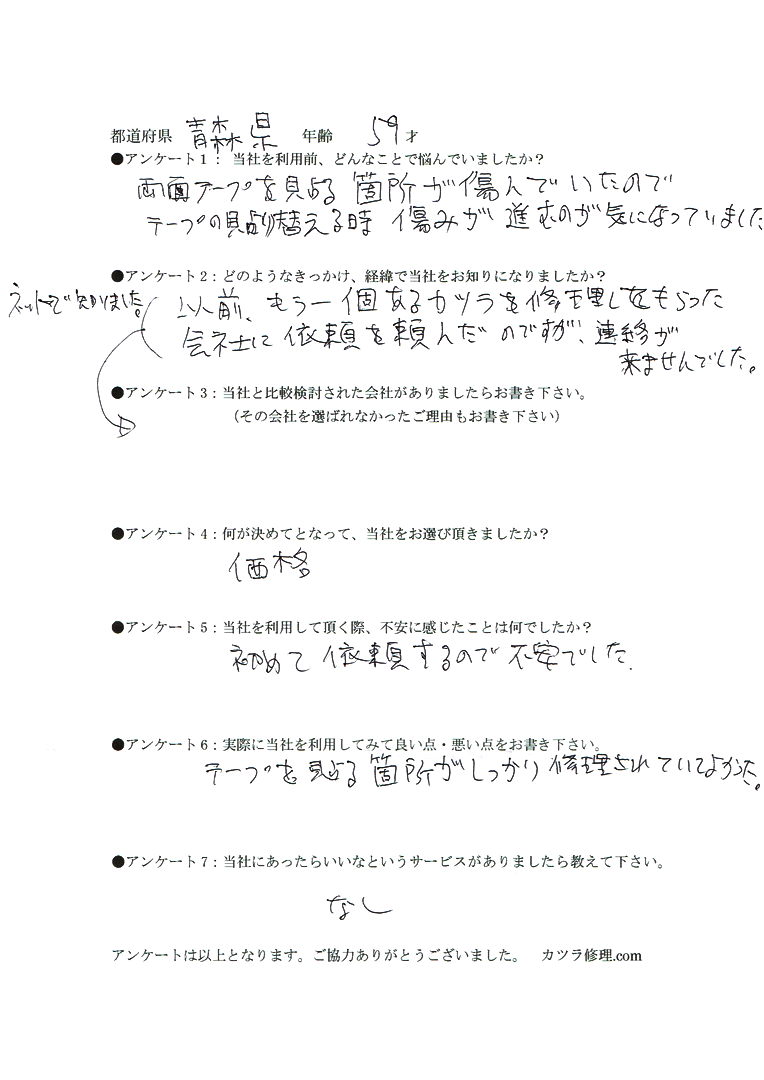 都道府県 青森県 年齢 59才
●アンケート1：当社を利用前、どんなことで悩んでいましたか？
両面テープを貼る箇所が傷んでいたので
テープの貼り替える時 傷みが進むのが気になっていました
●アンケート2：どのようなきっかけ、経緯で当社をお知りになりましたか？
ネットで知りました。
以前、もう一個あるカツラを修理してもらった
会社に依頼を頼んだのですが、連絡が
来ませんでした。
●アンケート3：当社と比較検討された会社がありましたらお書き下さい。
（その会社を選ばれなかったご理由もお書き下さい）
●アンケート4：何が決めてとなって、当社をお選び頂きましたか？
価格
●アンケート5：当社を利用して頂く際、不安に感じたことは何でしたか？
初めて依頼するので不安でした.
●アンケート6：実際に当社を利用してみて良い点・悪い点をお書き下さい。
テープを貼る箇所がしっかり修理されていてよかった。
●アンケート7：当社にあったらいいなというサービスがありましたら教えて下さい。
なし
アンケートは以上となります。ご協力ありがとうございました。 カツラ修理.com